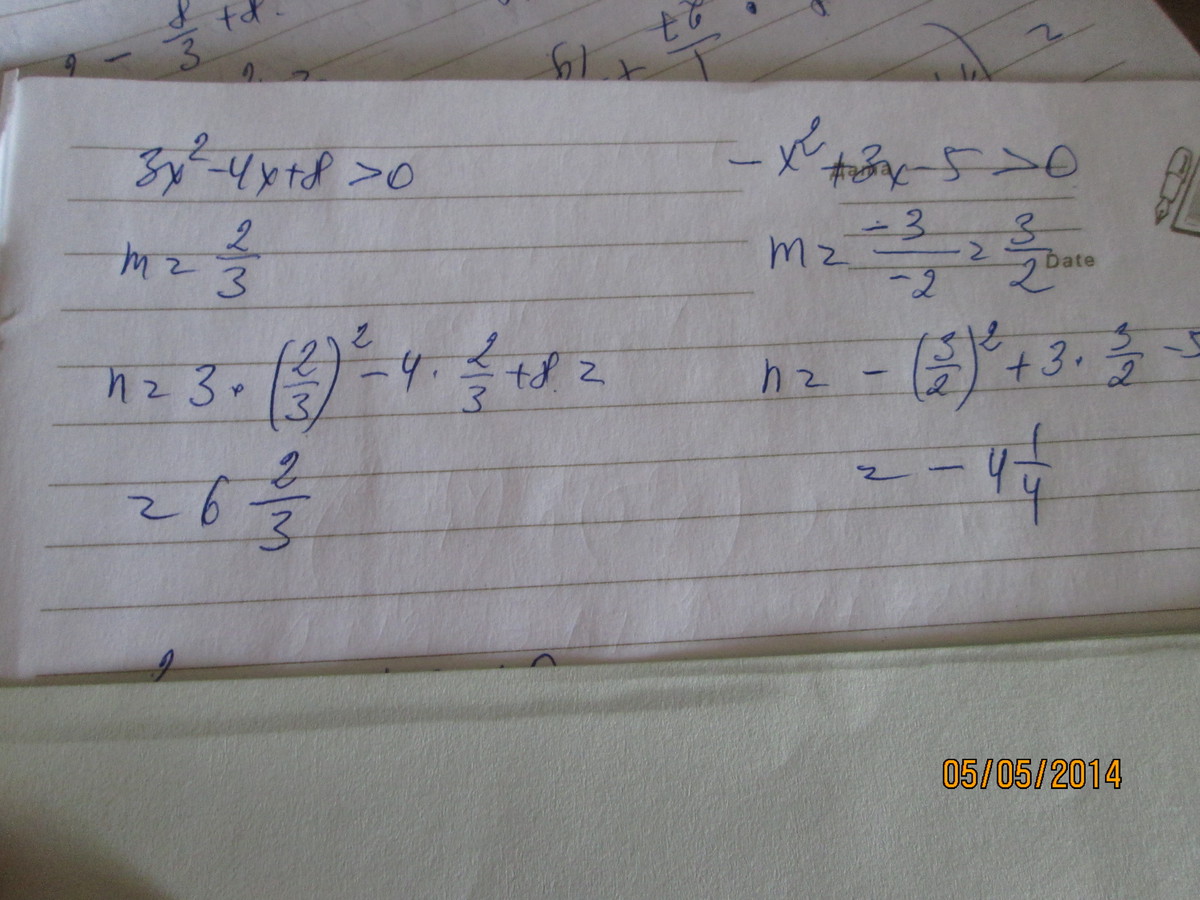 8/3 + 8.
3x² - 4x + 8 > 0
m = 2/3
n = 3 · (2/3)² - 4 · 2/3 + 8 =
= 6 2/3
- x² + 3x - 5 > 0
Дата
m = -3/-2 = 3/2
Date
n = - (3/2)² + 3 · 3/2 - 5
= - 4 1/4
05/05/2014